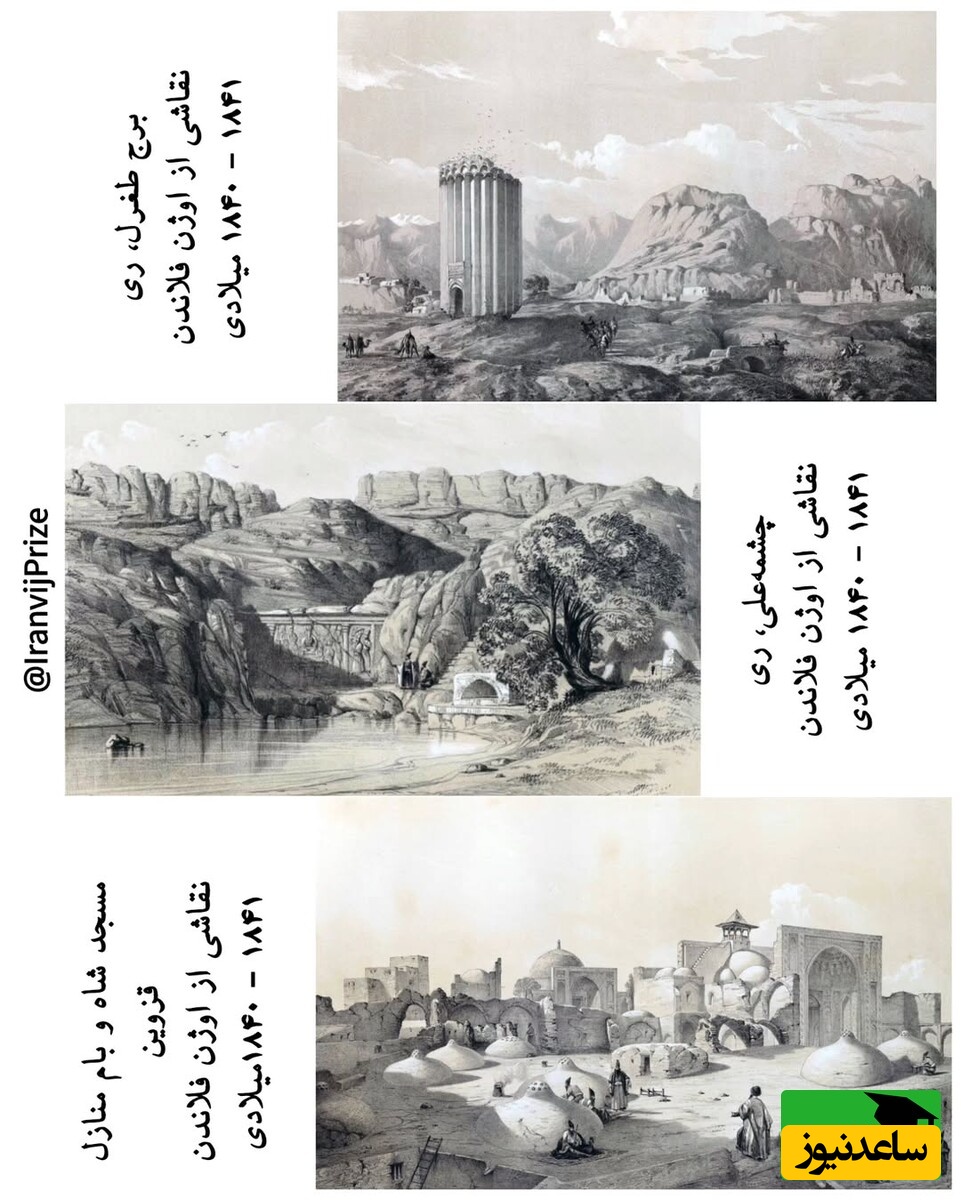 برج طغرل، ری
نقاشی از اوژن فلاندن
۱۸۴۰ - ۱۸۴۱ میلادی
@IranvijPrize
چشمه‌علی، ری
نقاشی از اوژن فلاندن
۱۸۴۰ - ۱۸۴۱ میلادی
مسجد شاه و بام منازل
قزوین
نقاشی از اوژن فلاندن
۱۸۴۰ - ۱۸۴۱میلادی
ساعدنیوز